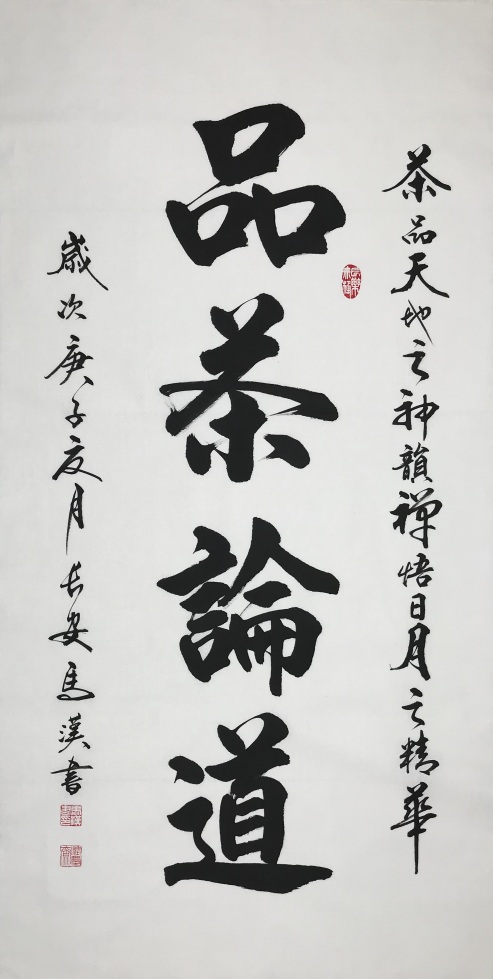 茶品天地之神韻禪悟日月之精華
品茶論道
歲次庚子夏月長安馬漢書